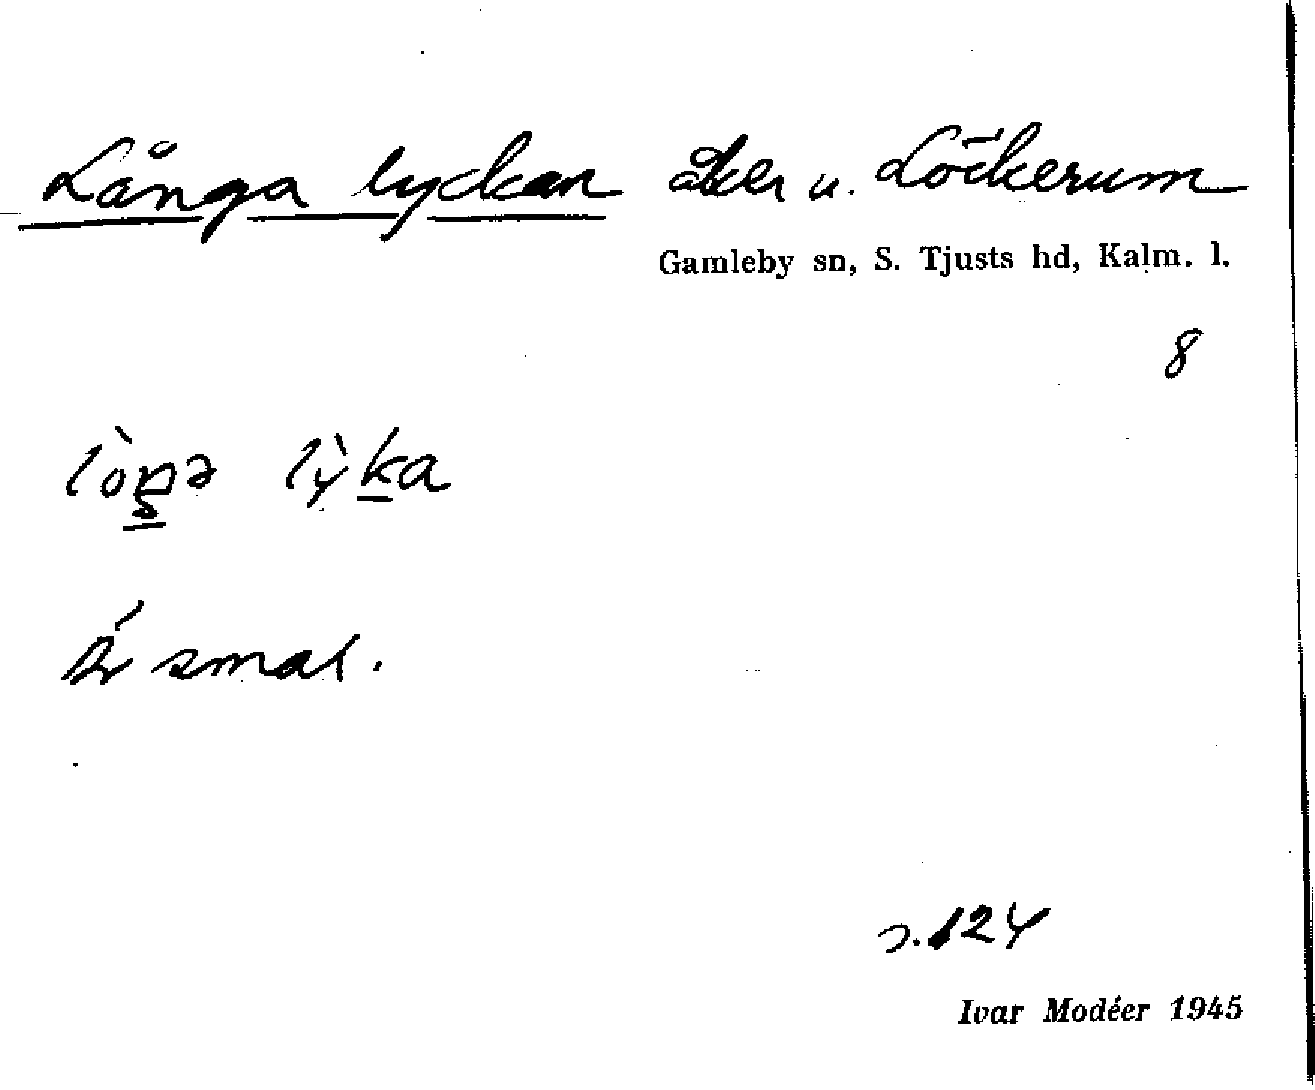 Långa lyckan åker u. Löckerum
Gamleby sn, S. Tjusts hd, Kalm. l.
8
lòŋə lỳka
Är smal.
s. 124
Ivar Modéer 1945